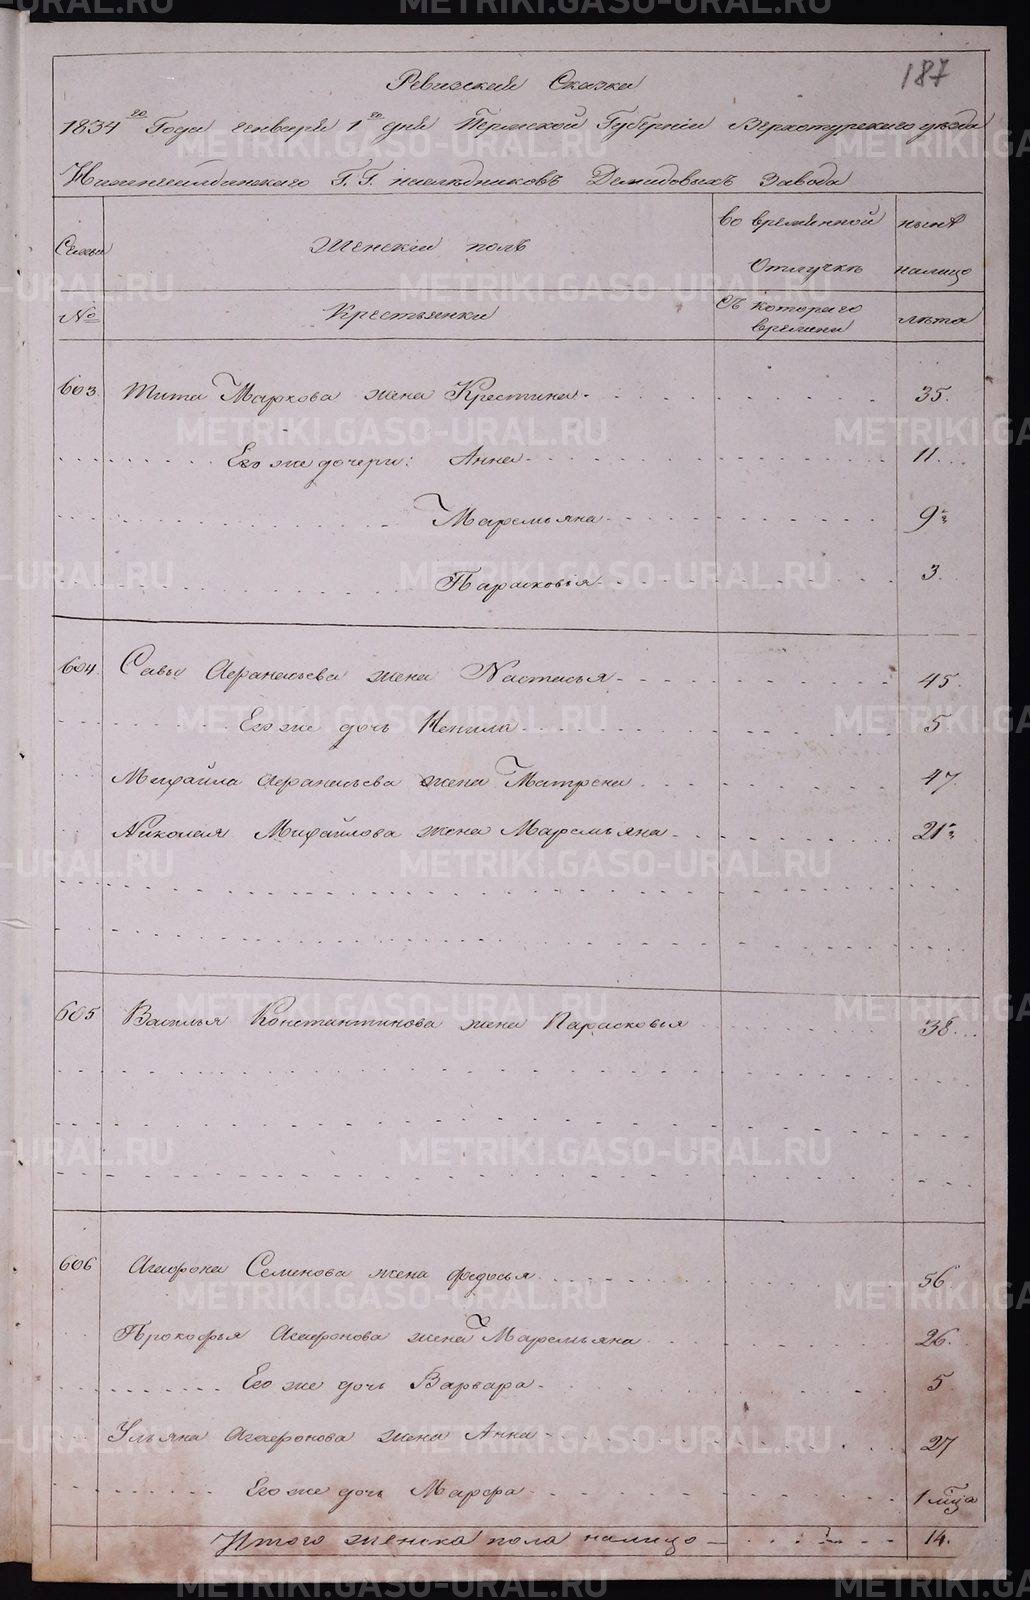 187
Ревизская Сказка
1834го Года генваря 1го дня Пермской Губерніи Верхотурскаго уезда
Нижнетагильскаго Г.Г. наследниковъ Демидовыхъ Завода
Семьи
Женскій полъ
во временной Отлучке
ныне налицо
№
Крестьянки
Съ котораго времени
лета
603. Тита Маркова жена Крестина 35.
Его же дочери: Анна 11.
Маремьяна 9
Парасковія 3.
604. Савы Афанасьева жена Настасья 45.
Его же дочь Ненила 5
Михайла Афанасьева жена Матрена 47.
Николая Михайлова жена Маремьяна 21
605 Василья Константинова жена Парасковья 38.
606 Агафона Семенова жена Федосья 56.
Прокофья Агафонова жена Маремьяна 26.
Его же дочь Варвара 5
Ульяна Агафонова жена Анна 27
Его же дочь Марфа 1 мца
Итого женска пола налицо 14.
METRIKI.GASO-URAL.RU